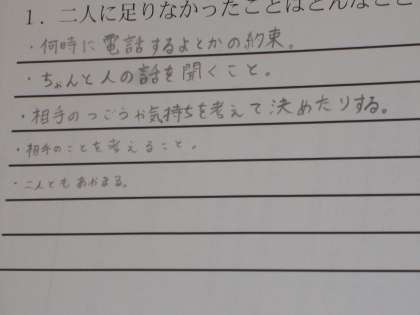 1. 二人に足りなかったことはどんなこと
・何時に電話するよとかの約束。
・ちゃんと人の話を聞くこと。
・相手のつごうや気持ちを考えて決めたりする。
・相手のことを考えること。
・二人ともあやまる。